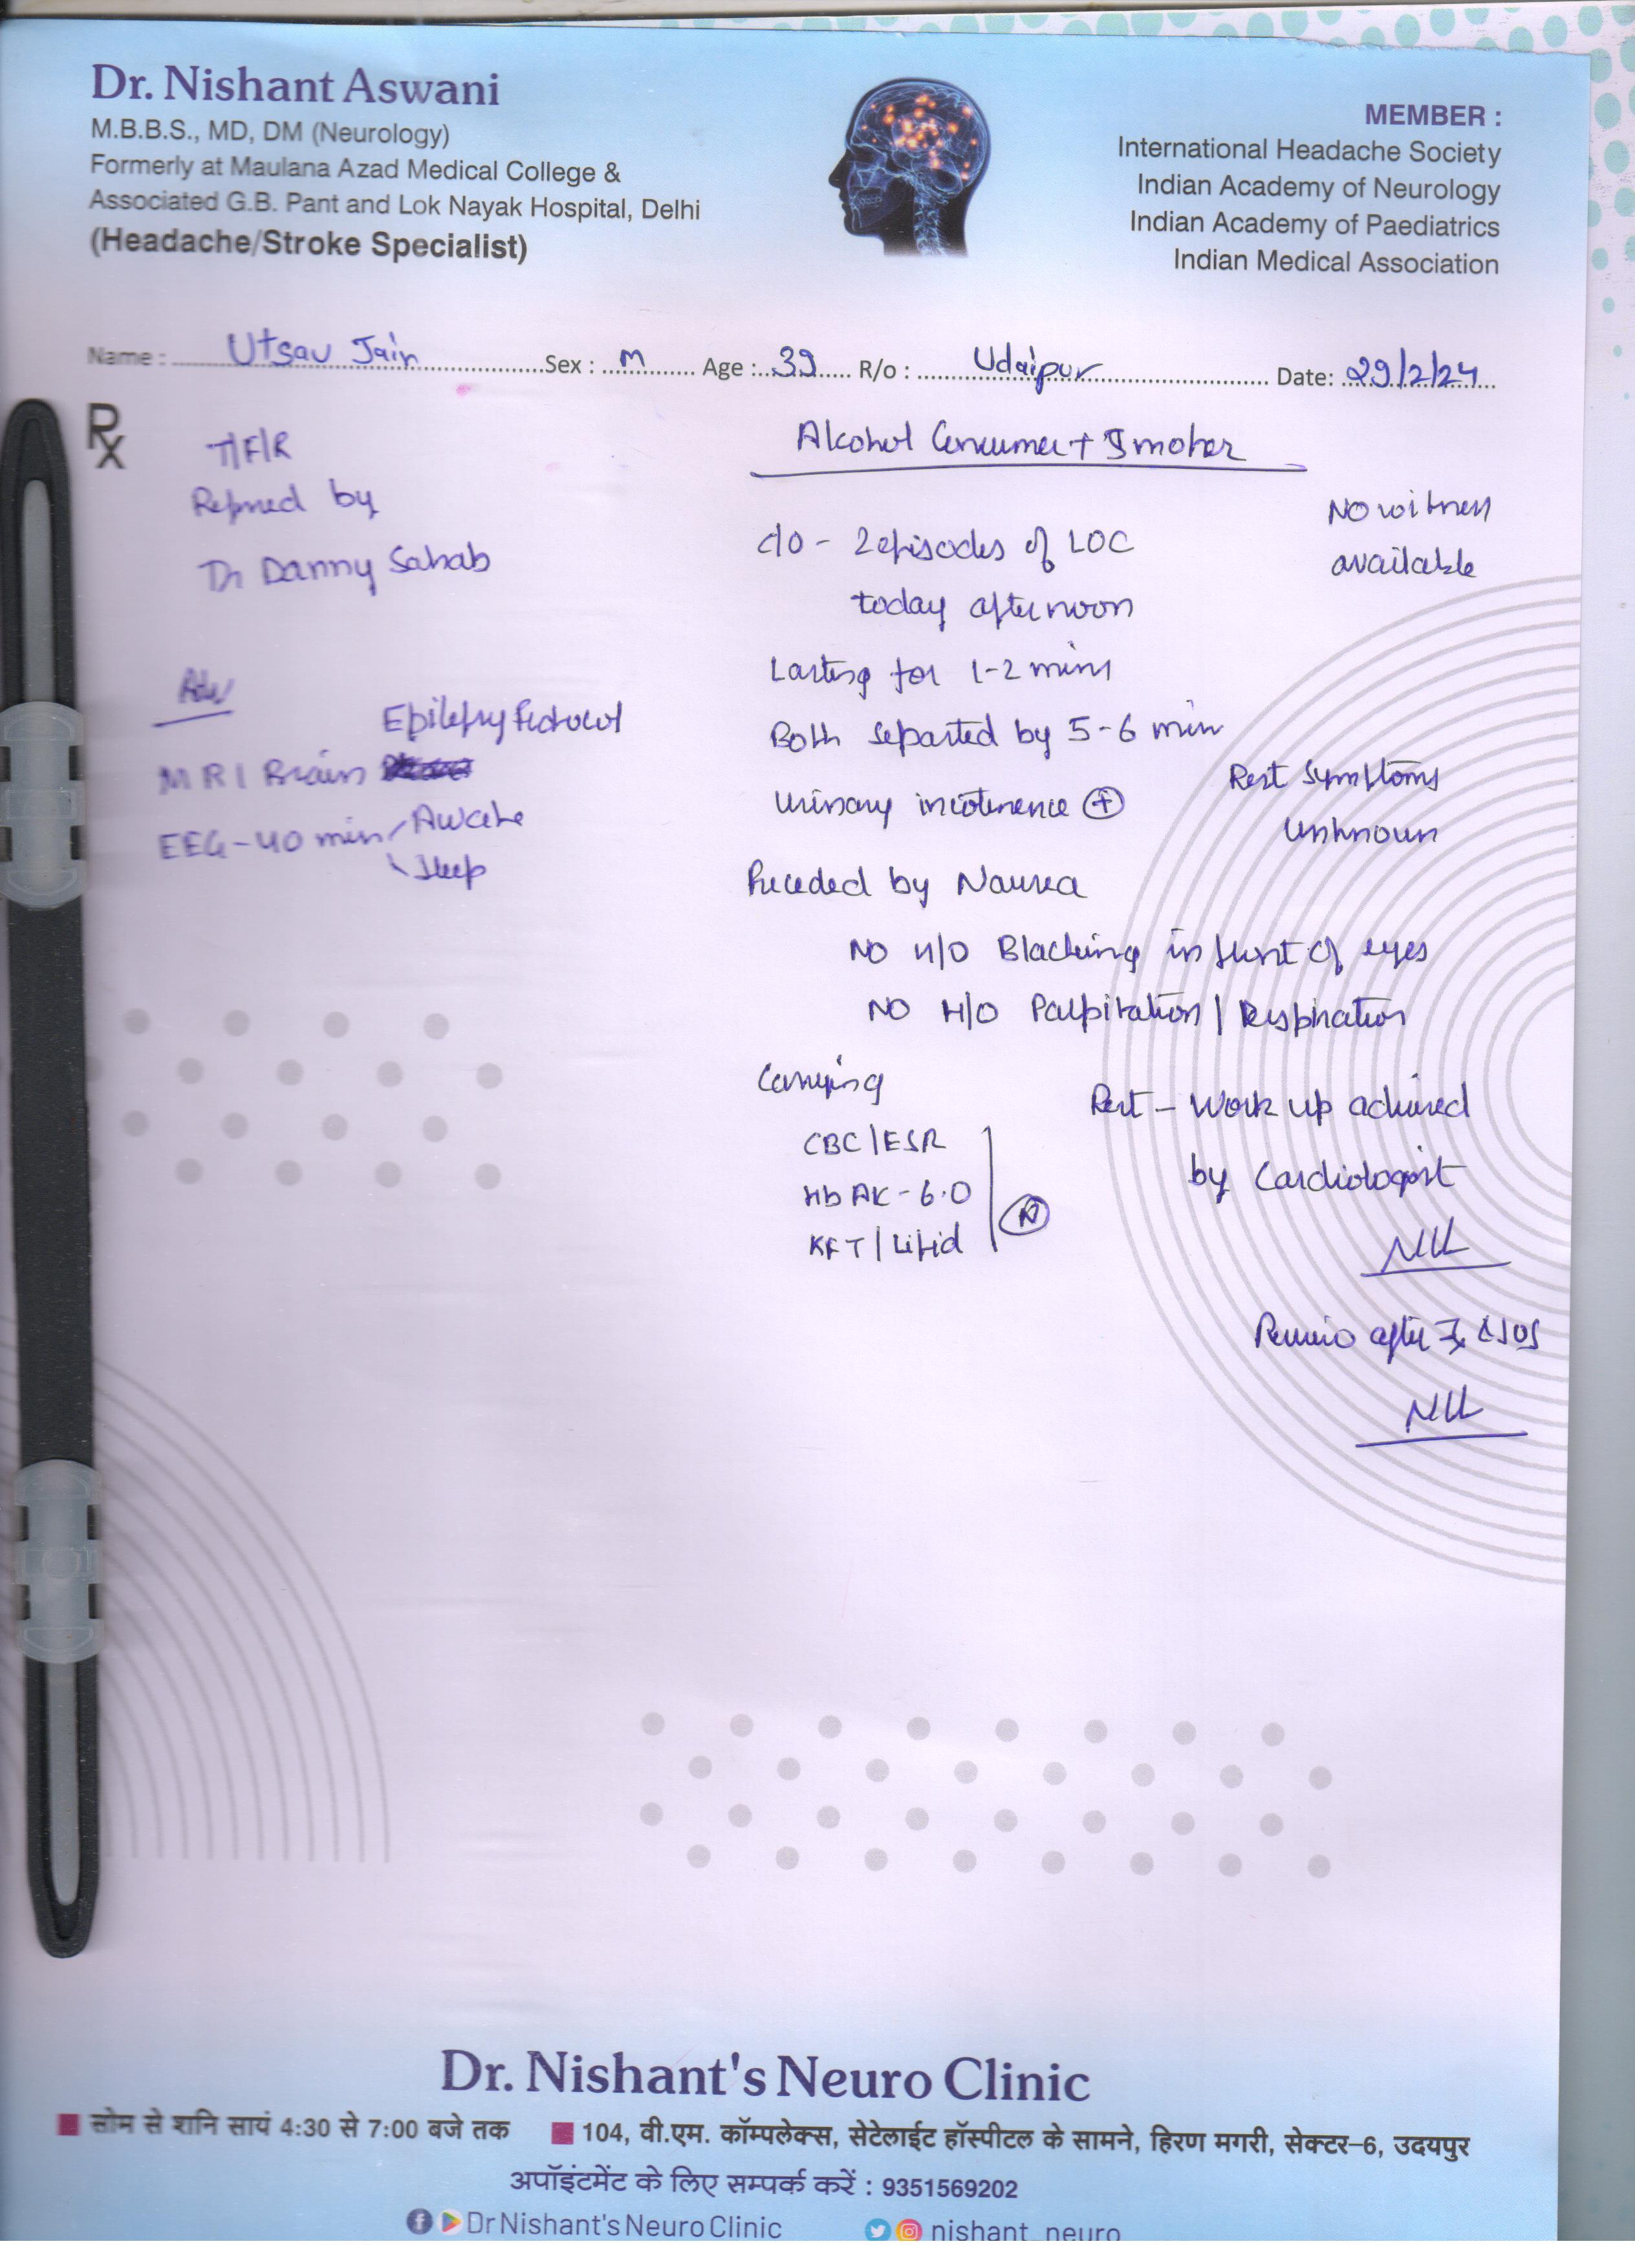 Dr. Nishant Aswani
M.B.B.S., MD, DM (Neurology)
Formerly at Maulana Azad Medical College &
Associated G.B. Pant and Lok Nayak Hospital, Delhi
(Headache/Stroke Specialist)
MEMBER :
International Headache Society
Indian Academy of Neurology
Indian Academy of Paediatrics
Indian Medical Association
Name : Utsav Jain Sex : M Age : 39 R/o : Udaipur Date: 29/2/24
Rx
T/F/R
Referred by
Dr Danny Sahab
Adv
Epilepsy Protocol
MRI Brain
EEG - 40 min Awake
Sleep
Alcohol Consumer + Smoker
No witness
available
c/o - 2 episodes of LOC
today afternoon
Lasting for 1-2 mins
Both separted by 5-6 min
Urinary incotinence +
Rest symptoms
unknown
Preceded by Nausea
NO H/O Blacking in front of eyes
NO H/O Palpitation /
Carrying
CBC/ESR
HbA1c - 6.0
KFT/Lipid
N
Rest - Work up advised
by Cardiologist
Review after
Dr. Nishant's Neuro Clinic
सोम से शनि सायं 4:30 से 7:00 बजे तक
104, वी.एम. कॉम्पलेक्स, सेटेलाईट हॉस्पीटल के सामने, हिरण मगरी, सेक्टर-6, उदयपुर
अपॉइंटमेंट के लिए सम्पर्क करें : 9351569202
Dr Nishant's Neuro Clinic
nishant_neuro